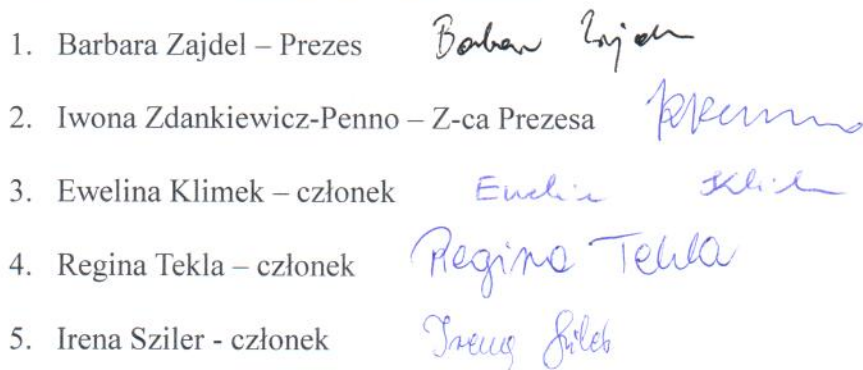 1. Barbara Zajdel – Prezes Barbara Zajdel
2. Iwona Zdankiewicz-Penno – Z-ca Prezesa
3. Ewelina Klimek – członek Ewelina Klimek
4. Regina Tekla – członek Regina Tekla
5. Irena Sziler - członek Irena Sziler